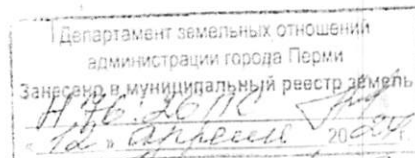 Департамент земельных отношений
администрации города Перми
Занесено в муниципальный реестр земель
« 12 » апреля 20